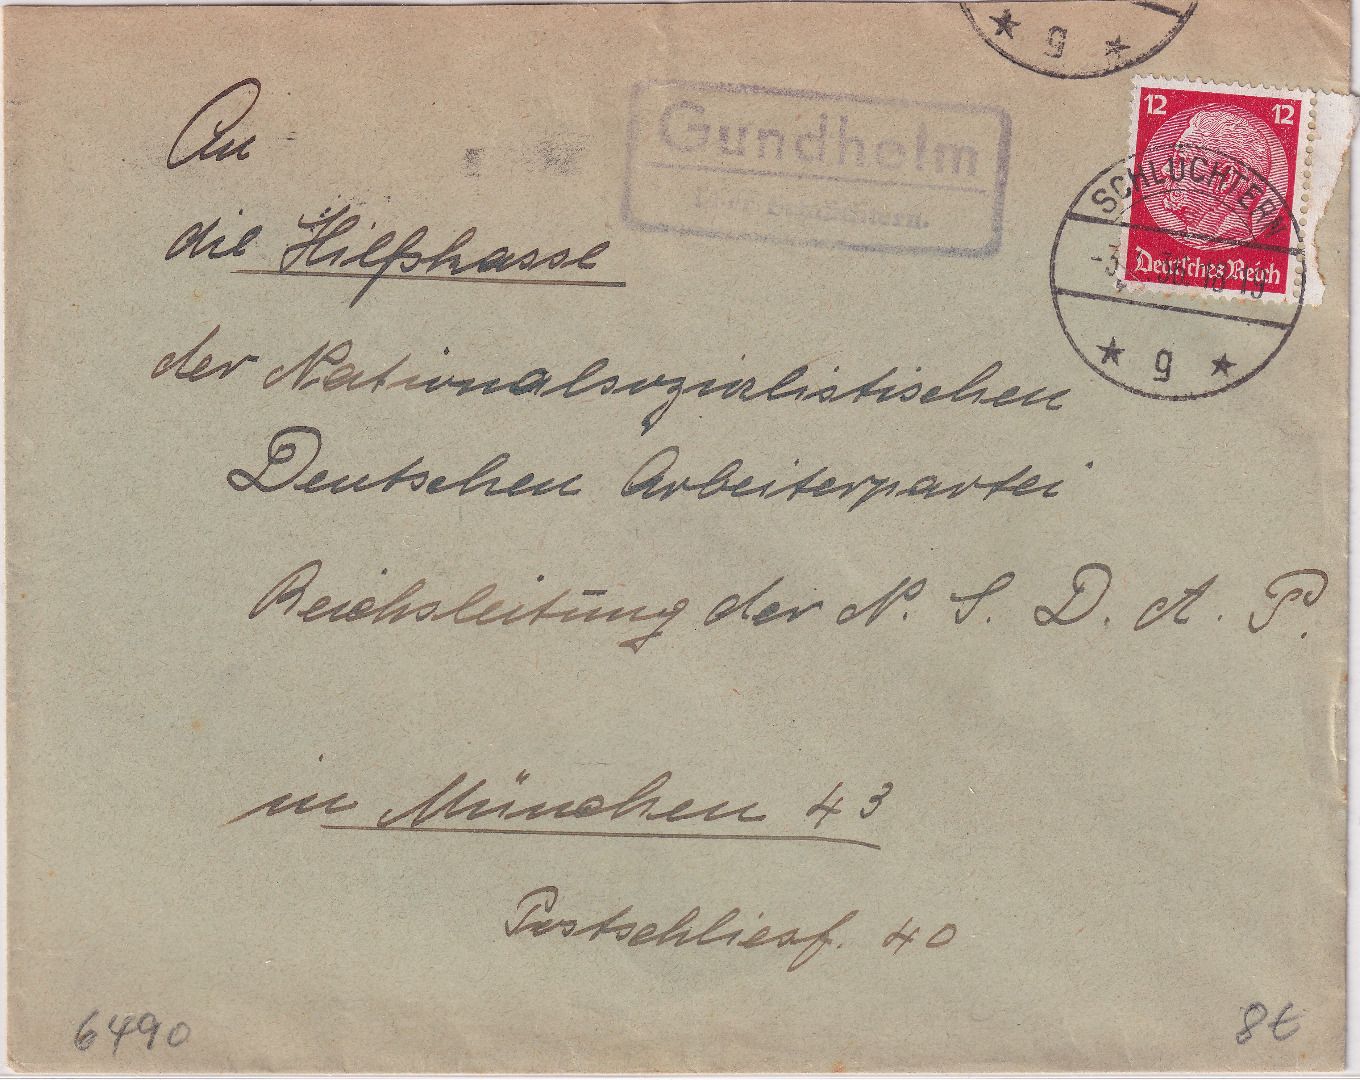 g
An
die Hilfskasse
der Nationalsozialistischen
Deutschen Arbeiterpartei
Reichsleitung der N. S. D. A. P.
in München 43
Postschliesf. 40
Gundhelm
über Schlüchtern.
12 12
Deutsches Reich
SCHLÜCHTERN
g
6490
8€